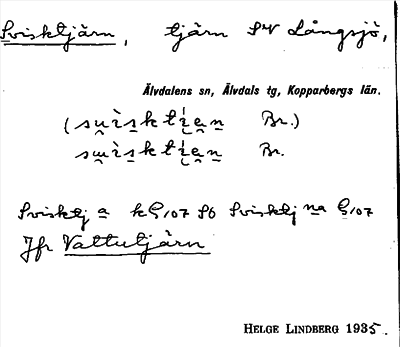 Svisktjärn, tjärn SV Långsjö,
Älvdalens sn, Älvdals tg, Kopparbergs län.
(su̯ìsktíe̯n Br.)
su̯ìsktíe̯n Br.
Svisktj a kG,107 So Svisktj na G,107
Jfr Vattutjärn
HELGE LINDBERG 1935.